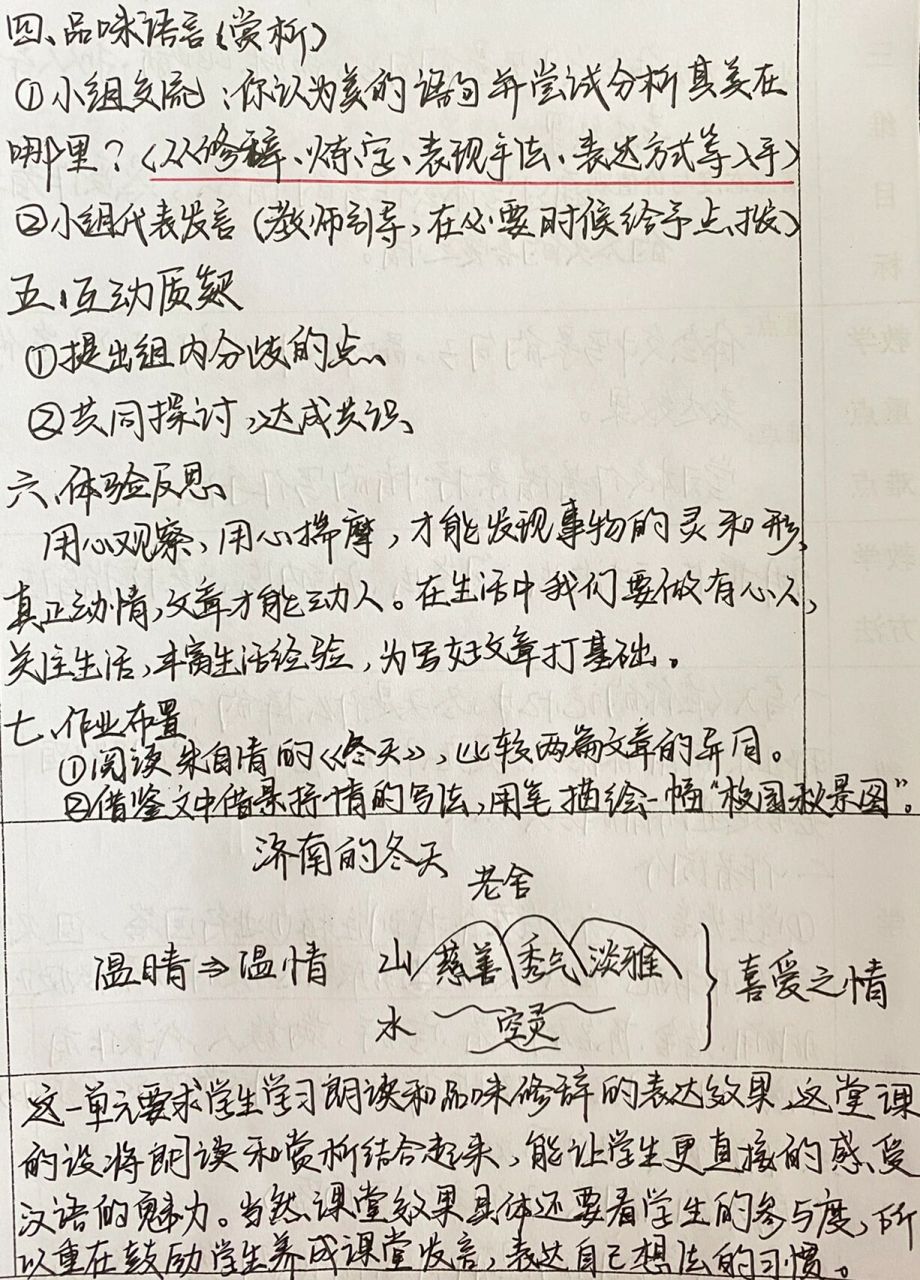 四、品味语言(赏析)
①小组交流:你认为美的语句并尝试分析其美在
哪里?(从修辞、炼字、表现手法、表达方式等入手)
②小组代表发言(教师引导,在必要时候给予点拨)
五、互动质疑
①提出组内分歧的点、
②共同探讨,达成共识、
六、体验反思、
用心观察、用心揣摩,才能发现事物的灵和形,
真正动情,文章才能动人。在生活中我们要做有心人,
关注生活,丰富生活经验,为写好文章打基础。
七、作业布置
①阅读朱自清的《冬天》,比较两篇文章的异同。
②借鉴文中借景抒情的写法,用笔描绘一幅“校园秋景图”。
济南的冬天
老舍
温晴⇒温情 山 慈善 秀气 淡雅 喜爱之情
水 空灵
这一单元要求学生学习朗读和品味修辞的表达效果,这堂课
的设将朗读和赏析结合起来,能让学生更直接的感受
汉语的魅力。当然课堂效果具体还要看学生的参与度,所
以重在鼓励学生养成课堂发言,表达自己想法的习惯。